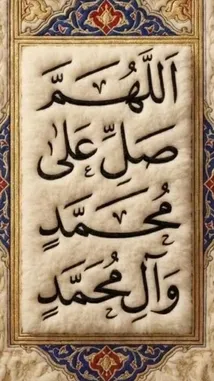 اَللَّهُمَّ
صَلِّ عَلى
مُحَمَّدٍ
وَآلِ مُحَمَّدٍ